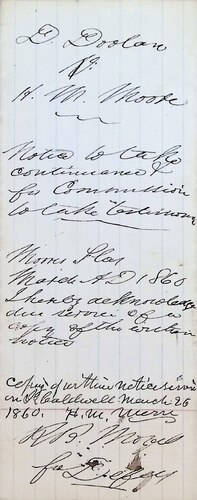 D. Doolan
Vs
H. M. Moore
Notice to take
continuance &
for Commission
to take Testimony
Morris Slay
March AD 1860
I hereby acknowledge
due service of a
copy of the within
notice
copy of within notice served
on Caldwell March 26
1860. H. M.
R. B. Moore
for